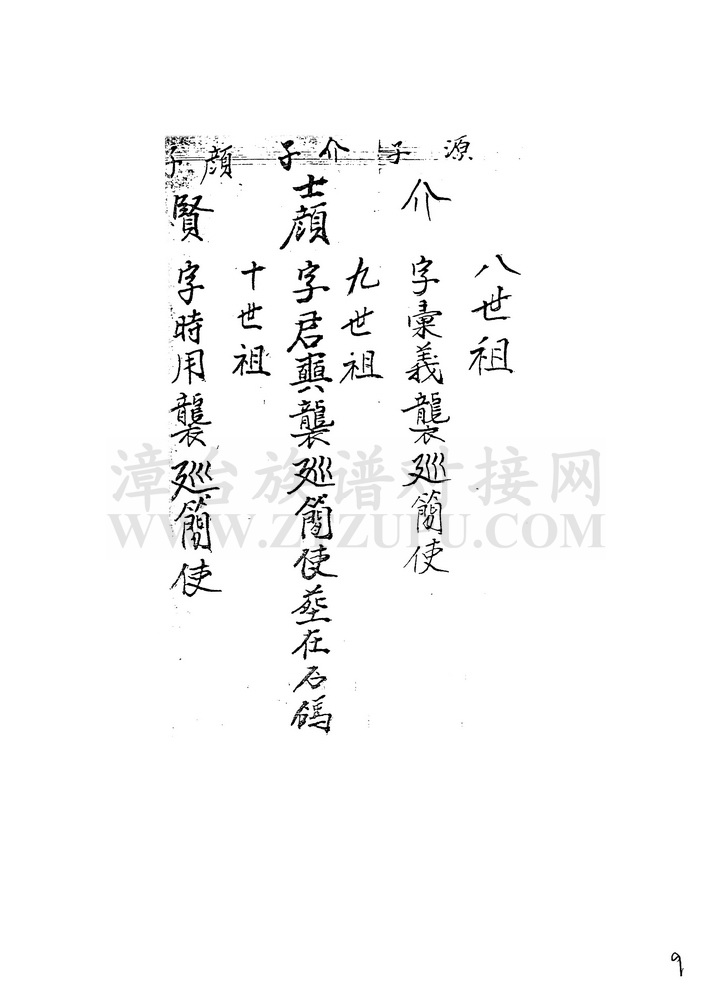 源子
八世祖
介
字彙義襲廵簡使
介子
九世祖
士顔
字君爽襲廵簡使塟在石碼
顔子
十世祖
賢
字時用襲廵簡使
漳台族谱对接网
WWW.ZTZUPU.COM
9